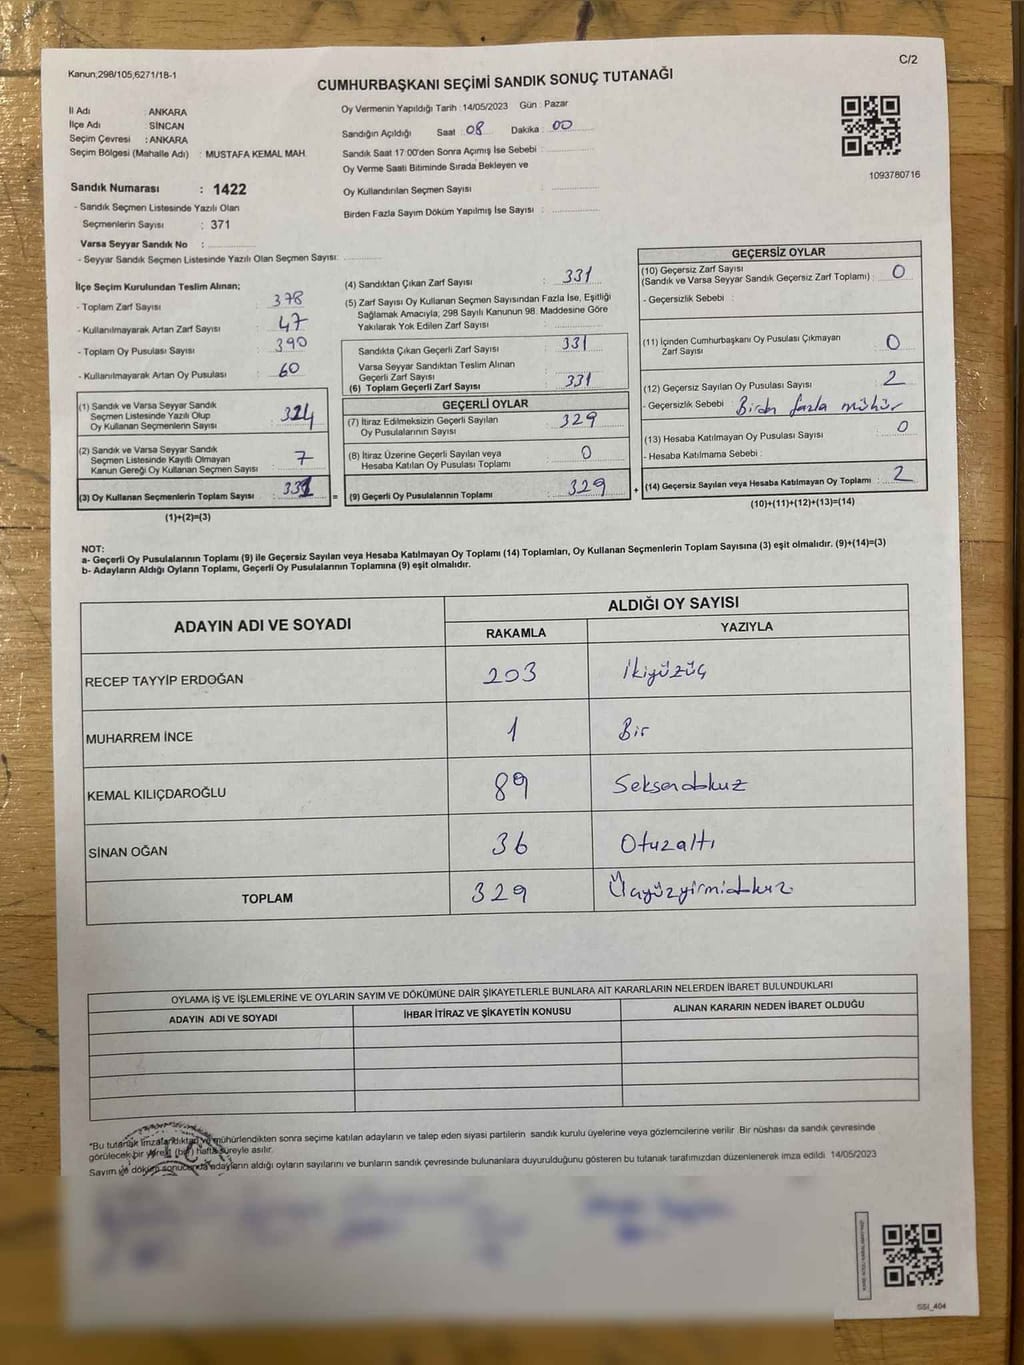 Kanun;298/105,6271/18-1
C/2
CUMHURBAŞKANI SEÇİMİ SANDIK SONUÇ TUTANAĞI
İl Adı ANKARA
İlçe Adı : SİNCAN
Seçim Çevresi : ANKARA
Seçim Bölgesi (Mahalle Adı) : MUSTAFA KEMAL MAH.
Oy Vermenin Yapıldığı Tarih : 14/05/2023 Gün : Pazar
Sandığın Açıldığı Saat : 08 Dakika : 00
Sandık Saat 17:00'den Sonra Açımış İse Sebebi :
Oy Verme Saati Bitiminde Sırada Bekleyen ve
Oy Kullandırılan Seçmen Sayısı :
Birden Fazla Sayım Döküm Yapılmış İse Sayısı :
1093780716
Sandık Numarası : 1422
- Sandık Seçmen Listesinde Yazılı Olan
Seçmenlerin Sayısı : 371
Varsa Seyyar Sandık No :
- Seyyar Sandık Seçmen Listesinde Yazılı Olan Seçmen Sayısı:
İlçe Seçim Kurulundan Teslim Alınan;
- Toplam Zarf Sayısı : 378
- Kullanılmayarak Artan Zarf Sayısı : 47
- Toplam Oy Pusulası Sayısı : 390
- Kullanılmayarak Artan Oy Pusulası : 60
(1) Sandık ve Varsa Seyyar Sandık
Seçmen Listesinde Yazılı Olup
Oy Kullanan Seçmenlerin Sayısı : 324
(2) Sandık ve Varsa Seyyar Sandık
Seçmen Listesinde Kayıtlı Olmayan
Kanun Gereği Oy Kullanan Seçmen Sayısı : 7
(3) Oy Kullanan Seçmenlerin Toplam Sayısı : 331
(1)+(2)=(3)
(4) Sandıktan Çıkan Zarf Sayısı : 331
(5) Zarf Sayısı Oy Kullanan Seçmen Sayısından Fazla İse, Eşitliği
Sağlamak Amacıyla, 298 Sayılı Kanunun 98. Maddesine Göre
Yakılarak Yok Edilen Zarf Sayısı :
Sandıkta Çıkan Geçerli Zarf Sayısı : 331
Varsa Seyyar Sandıktan Teslim Alınan
Geçerli Zarf Sayısı :
(6) Toplam Geçerli Zarf Sayısı 331
GEÇERLİ OYLAR
(7) İtiraz Edilmeksizin Geçerli Sayılan
Oy Pusulalarının Sayısı : 329
(8) İtiraz Üzerine Geçerli Sayılan veya
Hesaba Katılan Oy Pusulası Toplamı : 0
= (9) Geçerli Oy Pusulalarının Toplamı : 329
GEÇERSİZ OYLAR
(10) Geçersiz Zarf Sayısı
(Sandık ve Varsa Seyyar Sandık Geçersiz Zarf Toplamı) : 0
- Geçersizlik Sebebi :
(11) İçinden Cumhurbaşkanı Oy Pusulası Çıkmayan
Zarf Sayısı : 0
(12) Geçersiz Sayılan Oy Pusulası Sayısı : 2
- Geçersizlik Sebebi : Birden fazla mühür
(13) Hesaba Katılmayan Oy Pusulası Sayısı : 0
- Hesaba Katılmama Sebebi :
+ (14) Geçersiz Sayılan veya Hesaba Katılmayan Oy Toplamı : 2
(10)+(11)+(12)+(13)=(14)
NOT:
a- Geçerli Oy Pusulalarının Toplamı (9) ile Geçersiz Sayılan veya Hesaba Katılmayan Oy Toplamı (14) Toplamları, Oy Kullanan Seçmenlerin Toplam Sayısına (3) eşit olmalıdır. (9)+(14)=(3)
b- Adayların Aldığı Oyların Toplamı, Geçerli Oy Pusulalarının Toplamına (9) eşit olmalıdır.
ADAYIN ADI VE SOYADI
ALDIĞI OY SAYISI
RAKAMLA YAZIYLA
RECEP TAYYİP ERDOĞAN 203 İkiyüzüç
MUHARREM İNCE 1 Bir
KEMAL KILIÇDAROĞLU 89 Seksendokuz
SİNAN OĞAN 36 Otuzaltı
TOPLAM 329 Üçyüzyirmidokuz
OYLAMA İŞ VE İŞLEMLERİNE VE OYLARIN SAYIM VE DÖKÜMÜNE DAİR ŞİKAYETLERLE BUNLARA AİT KARARLARIN NELERDEN İBARET BULUNDUKLARI
ADAYIN ADI VE SOYADI İHBAR İTİRAZ VE ŞİKAYETİN KONUSU ALINAN KARARIN NEDEN İBARET OLDUĞU
*Bu tutanak imzalandıktan ve mühürlendikten sonra seçime katılan adayların ve talep eden siyasi partilerin sandık kurulu üyelerine veya gözlemcilerine verilir. Bir nüshası da sandık çevresinde
görülecek bir yere (bir) hafta süreyle asılır.
Sayım ve döküm sonucunda adayların aldığı oyların sayılarını ve bunların sandık çevresinde bulunanlara duyurulduğunu gösteren bu tutanak tarafımızdan düzenlenerek imza edildi. 14/05/2023
SSI_404